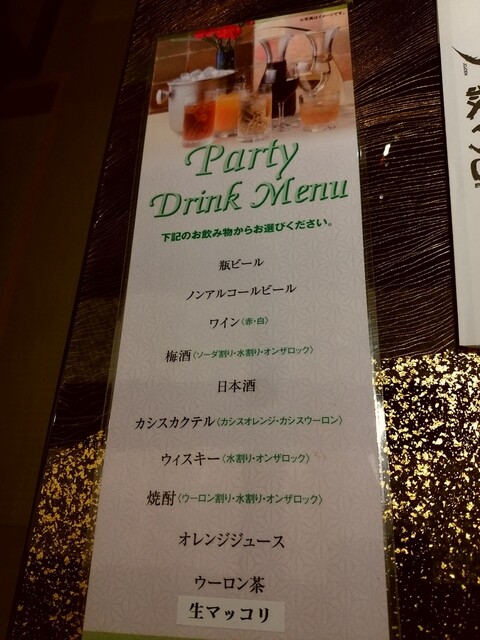 ※写真はイメージです。
Party
Drink Menu
下記のお飲み物からお選びください。
瓶ビール
ノンアルコールビール
ワイン〈赤・白〉
梅酒〈ソーダ割り・水割り・オンザロック〉
日本酒
カシスカクテル〈カシスオレンジ・カシスウーロン〉
ウィスキー〈水割り・オンザロック〉
焼酎〈ウーロン割り・水割り・オンザロック〉
オレンジジュース
ウーロン茶
生マッコリ